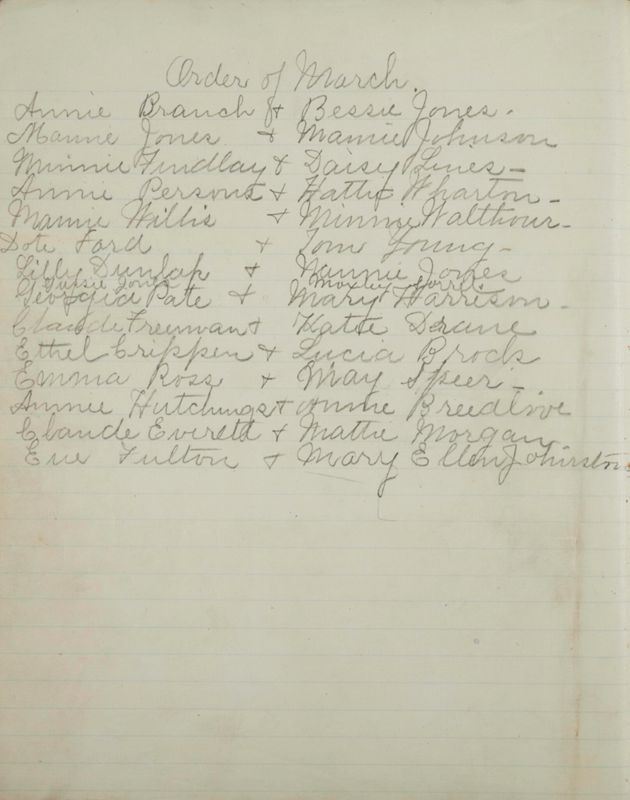 Order of March.
Annie Branch & Bessie Jones -
Mamie Jones & Mamie Johnson
Minnie Findlay & Daisy Lines -
Annie Persons & Hattie Wharton -
Mamie Willis & Minnie Walthour -
Dote Ford & Tom Young -
Lilly Dunlap & Nannie Jones
Jones
Georgia Pate & Mary Harrison -
Claude Freeman & Katie Drane
Ethel Crippen & Lucia Brock
Emma Ross & May Speer -
Annie Hutchings & Annie Breedlove
Claude Everett & Mattie Morgan
Eve Fulton & Mary Ellen Johnston